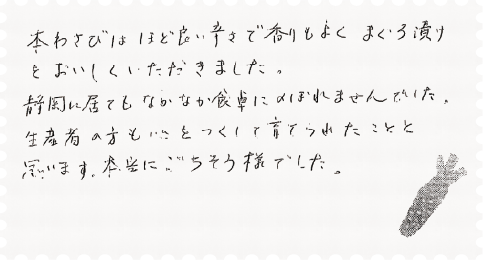 本わさびは ほど良い辛さで香りもよく まぐろ漬け
を おいしくいただきました。
静岡に居てもなかなか食卓にのぼれませんでした。
生産者の方も心をつくして育てられたことと
思います。本当にごちそう様でした。